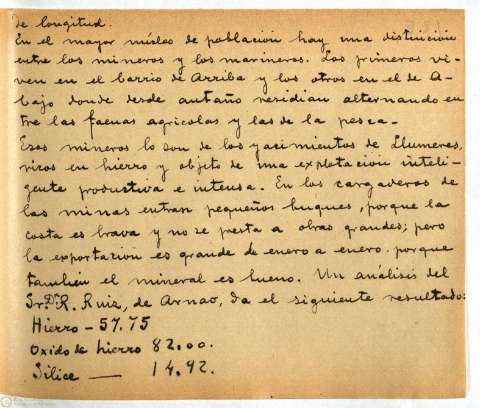 de longitud.
En el mayor núcleo de población hay una distinción
entre los mineros y los marineros. Los primeros vi-
ven en el barrio de Arriba y los otros en el de A-
bajo donde desde antaño residian alternando en
tre las faenas agrícolas y las de la pesca-
Esos mineros lo son de los yacimientos de Llumeres,
ricos en hierro y objeto de una explotación inteli-
gente productiva e intensa. En los cargaderos de
las minas entran pequeños buques, porque la
costa es brava y no se presta a obras grandes; pero
la exportación es grande de enero a enero. porque
también el mineral es bueno. Un análisis del
Sr. Dn R. Ruiz, de Arnao, da el siguiente resultado:
Hierro - 57.75
Oxido de hierro 82.00.
Sílice — 14.92.